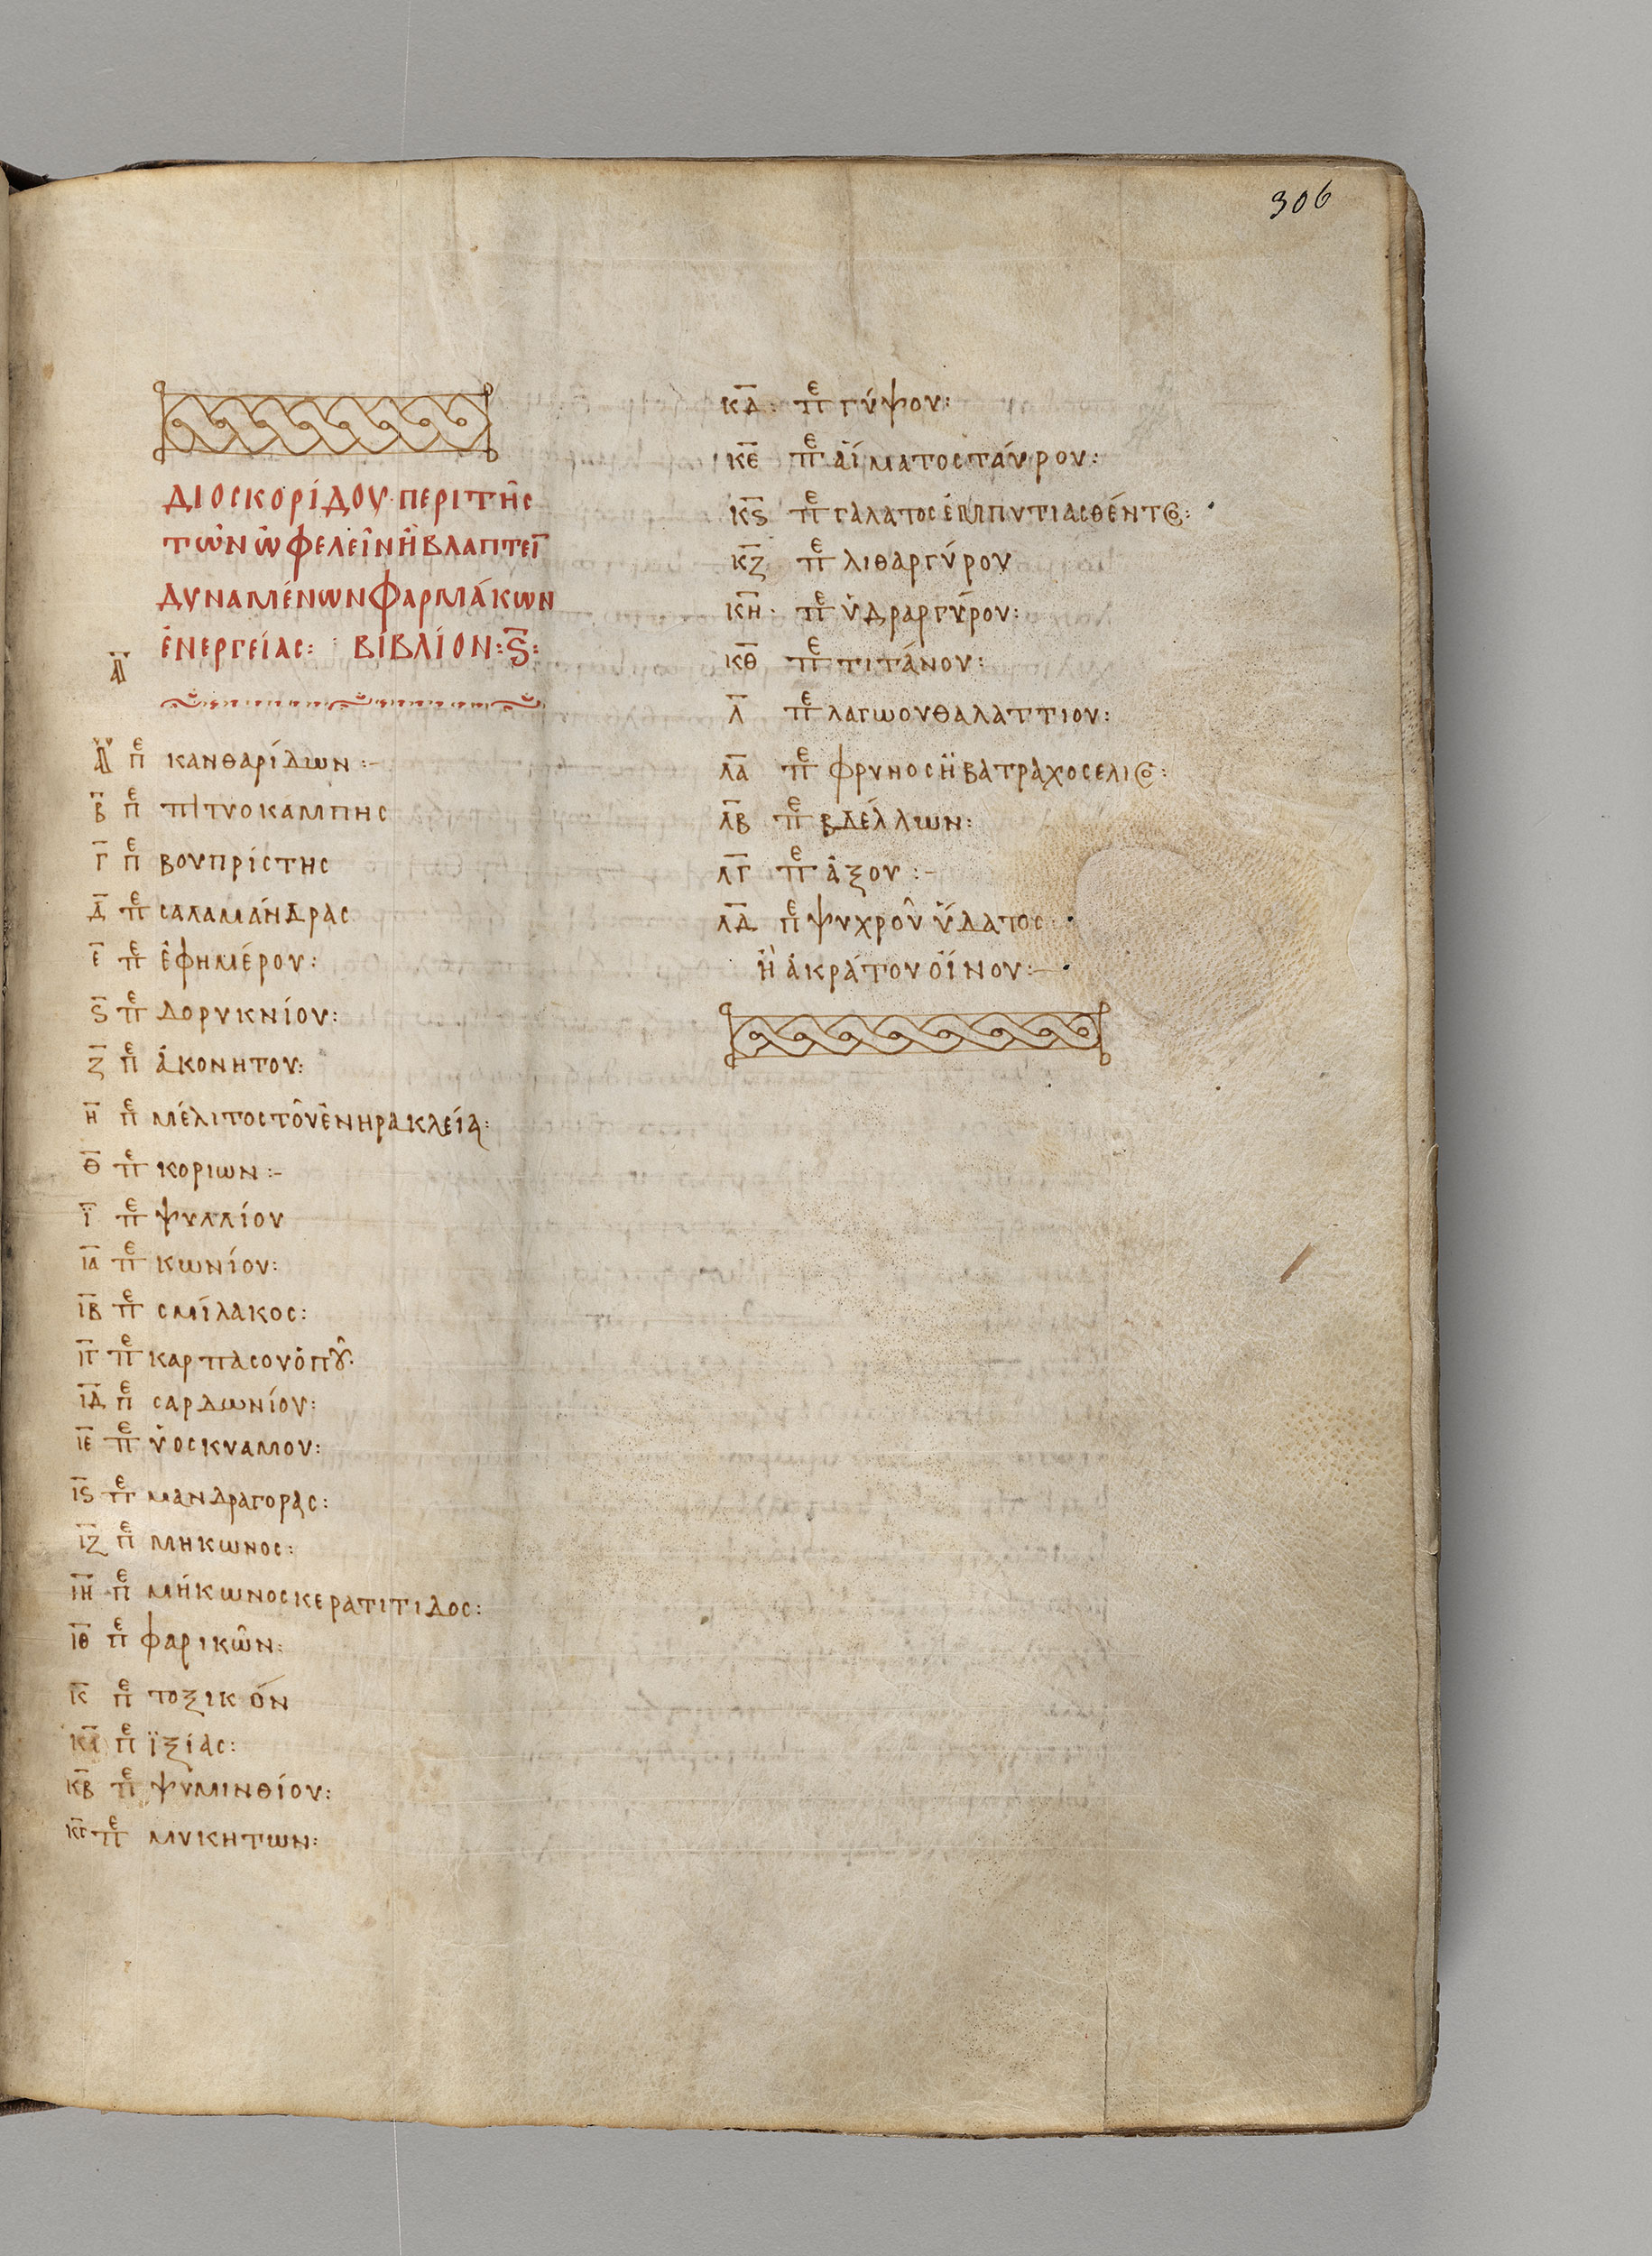 306
ΔΙΟΣΚΟΡίΔΟΥ·ΠΕΡΙΤΗ͂Σ
ΤΩ͂ΝὨΦΕΛΕΙ͂ΝἪΒΛΑΠΤΕΙ̅
ΔΥΝΑΜΈΝΩΝΦΑΡΜΆΚΩΝ
ἘΝΕΡΓΕΊΑΣ: ΒΙΒΛΊΟΝ:Ϛ̅:
Α̅
Α̅ πε κανθαρίδων:-
Β̅ πε πιτυοκαμπης
Γ̅ πε βουπρίστης
Δ̅ πε σαλαμάνδρας
Ε̅ πε ἐφημέρου:
Ϛ̅ πε δορυκνίου:
Ζ̅ πε ἀκονητου:
Η̅ πε μέλιτοστοῦἐνηρακλεία:
Θ̅ πε κοριων:-
Ι̅ πε ψυλλίου
ΙΑ̅ πε κωνίου:
ΙΒ̅ πε σμίλακος:
ΙΓ̅ πε καρπασουὀποῦ·
ΙΔ̅ πε σαρδωνίου:
ΙΕ̅ πε ὑοσκυαμου:
ΙϚ̅ πε μανδραγορας:
ΙΖ̅ πε μηκωνος:
ΙΗ̅ πε μήκωνοσκερατιτιδος:
ΙΘ̅ πε φαρικῶν:
Κ̅ πε τοξικόν
ΚΑ̅ πε ϊξίας:
ΚΒ̅ πε ψυμινθίου:
ΚΓ̅ πε μυκητων:
ΚΔ̅: πε γύψου:
ΚΕ̅ πε αἵματοσταύρου:
ΚϚ̅ πε γάλατοσἐμπυτιασθέντος:
ΚΖ̅ πε λιθαργύρου
ΚΗ̅: πε ὑδραργύρου:
ΚΘ̅ πε τιτάνου:
Λ̅ πε λαγωουθαλαττιου:
ΛΑ̅ πε φρυνοσἢβατραχοσελιος:
ΛΒ̅ πε βδέλλων:
ΛΓ̅ πε ἀξου:-
ΛΔ̅ πε ψυχροῦ ὕδατος
ἢ ἀκράτουοἴνου:-